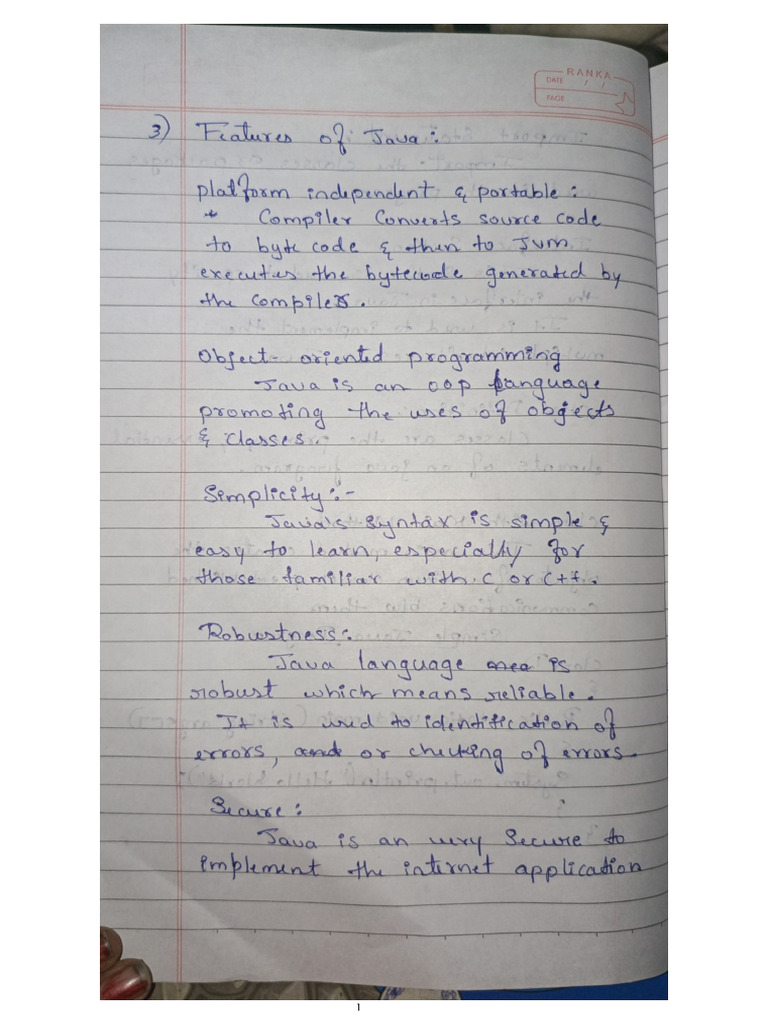 RANKA
DATE / /
PAGE
3) Features of Java:
platform independent & portable:
* Compiler Converts source code
to byte code & then to JVM
executes the bytecode generated by
the compiler.
Object-oriented programming
Java is an oop language
promoting the uses of objects
& classes.
Simplicity:-
Java's syntax is simple &
easy to learn, especially for
those familiar with C or C++.
Robustness:
Java language is
robust which means reliable.
It is used to identification of
errors, or checking of errors.
Secure:
Java is an very Secure to
implement the internet application
1